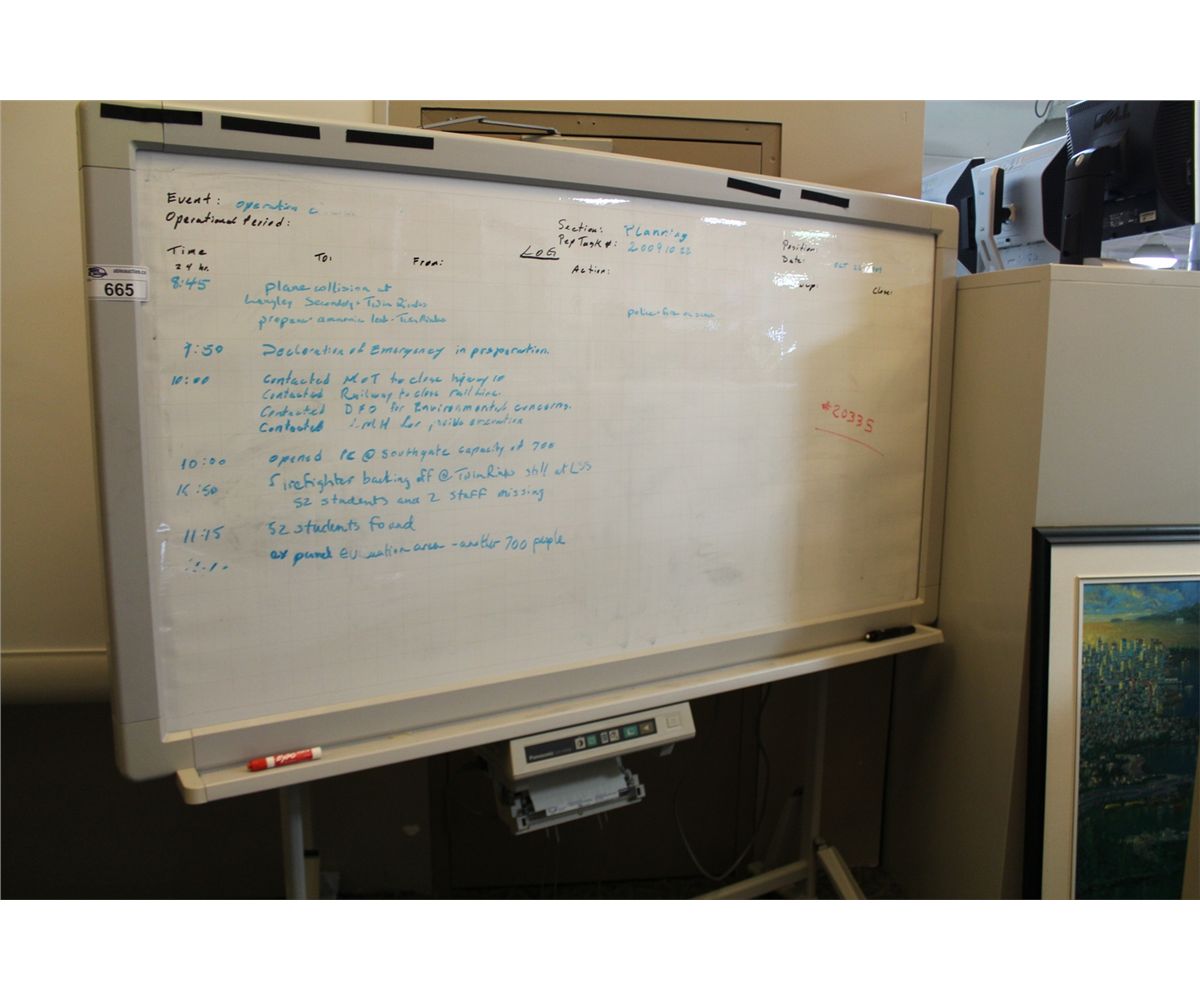 DELL
Event: operation
Operational Period:
Section: Planning
Pep Task #: 2009 10 23
Position:
Date: OCT
Time
24 hr.
To:
From:
LOG
Action:
Close:
ableauctions.ca
665
8:45 plane collision at
Langley Secondary + Twin Rinks
propane ammonia leak - Twin Rinks
police fire on scene
9:50 Declaration of Emergency in preparation.
10:00 Contacted MoT to close highway 10
Contacted Railway to close rail line.
Contacted DFO for Environmental concerns.
Contacted LMH for possible evacuation
10:00 opened RC @ Southgate capacity of 700
:50 Firefighter backing off @ Twin Rinks still at LSS
52 students and 2 staff missing
11:15 52 students found
expand area - another 700 people
#20335
Panasonic